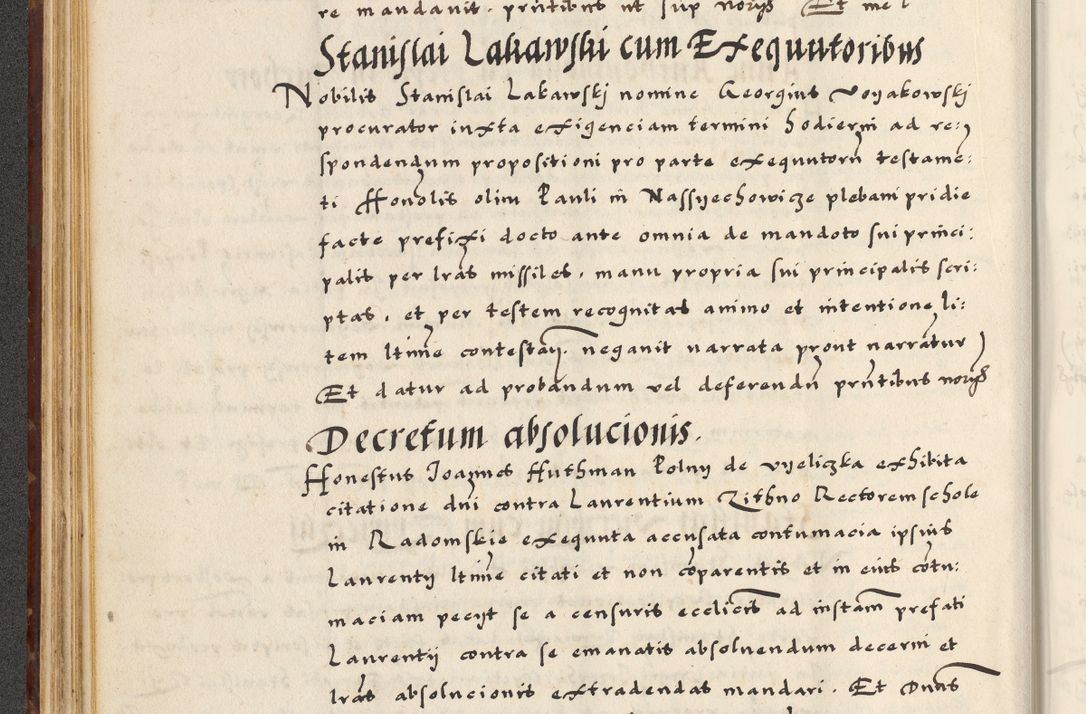 re mandavit. pn̄tibus ut sup norijs Et me
Stanislai Lakawski cum Exequutoribus
Nobilis Stanislai Lakawskj nomine Georgius voyakowskj
procurator iuxta exigenciam termini hodierni ad re:
spondendum propositioni pro parte exequutorū testame:
ti Honolis olim Pauli in Nassyechowicze plebani pridie
facte prefixi docto ante omnia de mandoto sui princi:
palis per lrās missiles, manu propria sui principalis scri:
ptas, et per testem recognitas animo et intentione li:
tem ltime contestan. negavit narrata prout narrātur
Et datur ad probandum vel deferendū prn̄tibus norijs
Decretum absolucionis.
Honestus Joannes Huthman Polny de vyeliczka exhibita
citatione dnī contra Laurentium Zithno Rectorem schole
in Radomskie exequuta accusata contumacia ipsius
Laurentij ltime citati et non cōparentis et in eius cōtu:
maciam pecijt se a censuris ecclicis ad instam prefati
Laurentij contra se emanatis absolvendum decerni et
lrās absolucionis extradendas mandari. Et Dnus